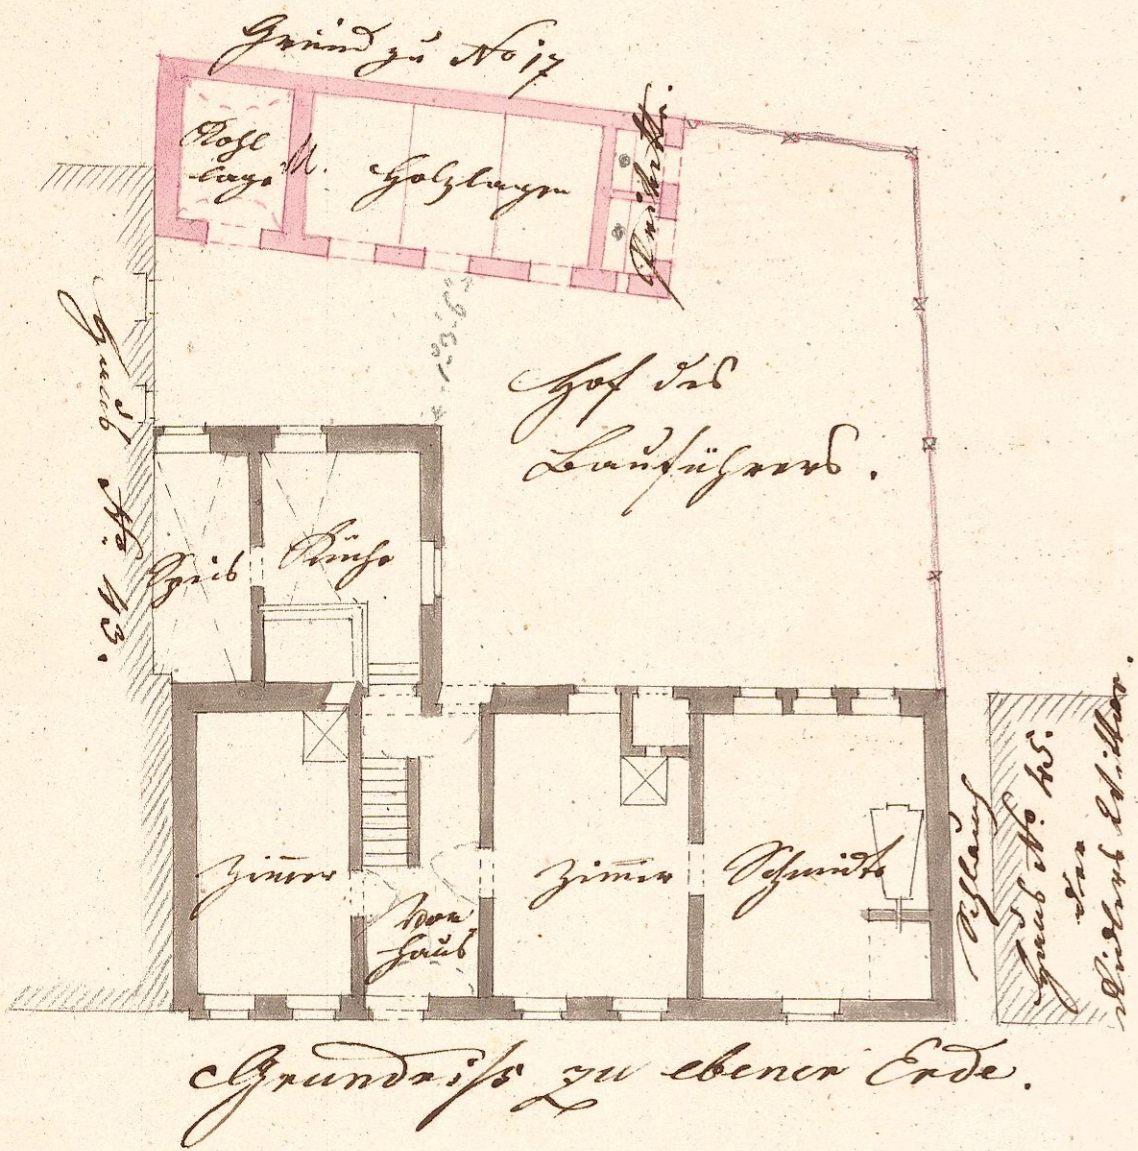 Grund zu No 17
Kohl
lage
M.
Holzlagen
Hof des
Bauführers.
Haus No. 43.
Speis
Küche
Zimer
Vor
haus
Zimer
Schmidte
Schlauch
Haus No. 45.
der
Grundriss zu ebener Erde.